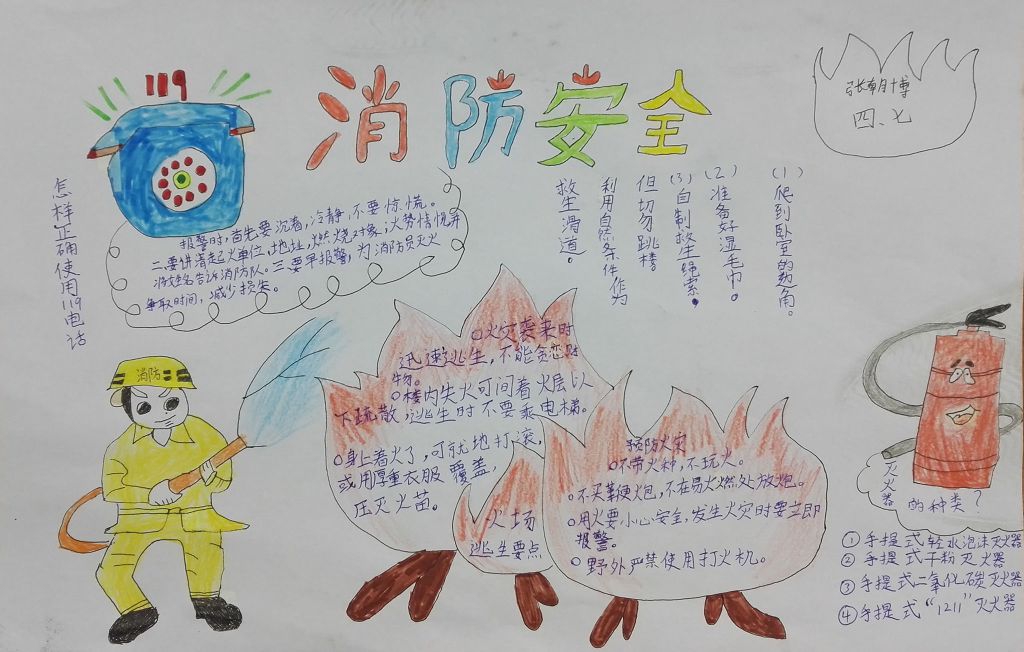 119
消防安全
张朝博
四、七
怎样正确使用119电话
报警时,首先要沉着,冷静,不要惊慌。
二要讲清起火单位,地址,燃烧对象,火势情况并
将姓名告诉消防队。三要早报警,为消防员灭火
争取时间,减少损失。
(1)爬到卧室的墙角。
(2)准备好湿毛巾。
(3)自制救生绳索。
但切勿跳楼
利用自然条件作为
救生滑道。
消防
火灾袭来时
迅速逃生,不能贪恋财
物。
楼内失火可间着火层以
下疏散,逃生时不要乘电梯。
身上着火了,可就地打滚,
或用厚重衣服覆盖,
压灭火苗。
火场
逃生要点
预防火灾
不带火种,不玩火。
不买鞭炮,不在易火燃处放炮。
用火要小心安全,发生火灾时要立即
报警。
野外严禁使用打火机。
灭火器
的种类?
①手提式轻水泡沫灭火器
②手提式干粉灭火器
③手提式二氧化碳灭火器
④手提式“1211”灭火器